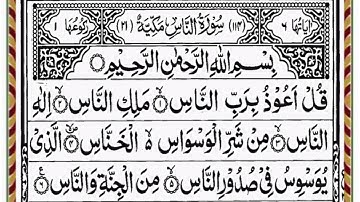 اٰیَاتُهَا ٦ (١١٤) سُوْرَةُ النَّاسِ مَكِّيَّةٌ (٢١) رُكُوْعُهَا ١
بِسْمِ اللّٰهِ الرَّحْمٰنِ الرَّحِيْمِ
قُلْ اَعُوْذُ بِرَبِّ النَّاسِ ۙ‏﴿١﴾ مَلِكِ النَّاسِ ۙ‏﴿٢﴾ اِلٰهِ
النَّاسِ ۙ‏﴿٣﴾ مِنْ شَرِّ الْوَسْوَاسِ ۙ۬ الْخَنَّاسِ ۙ‏﴿٤﴾ الَّذِیْ
یُوَسْوِسُ فِیْ صُدُوْرِ النَّاسِ ۙ‏﴿٥﴾ مِنَ الْجِنَّةِ وَالنَّاسِ ﴿٦﴾